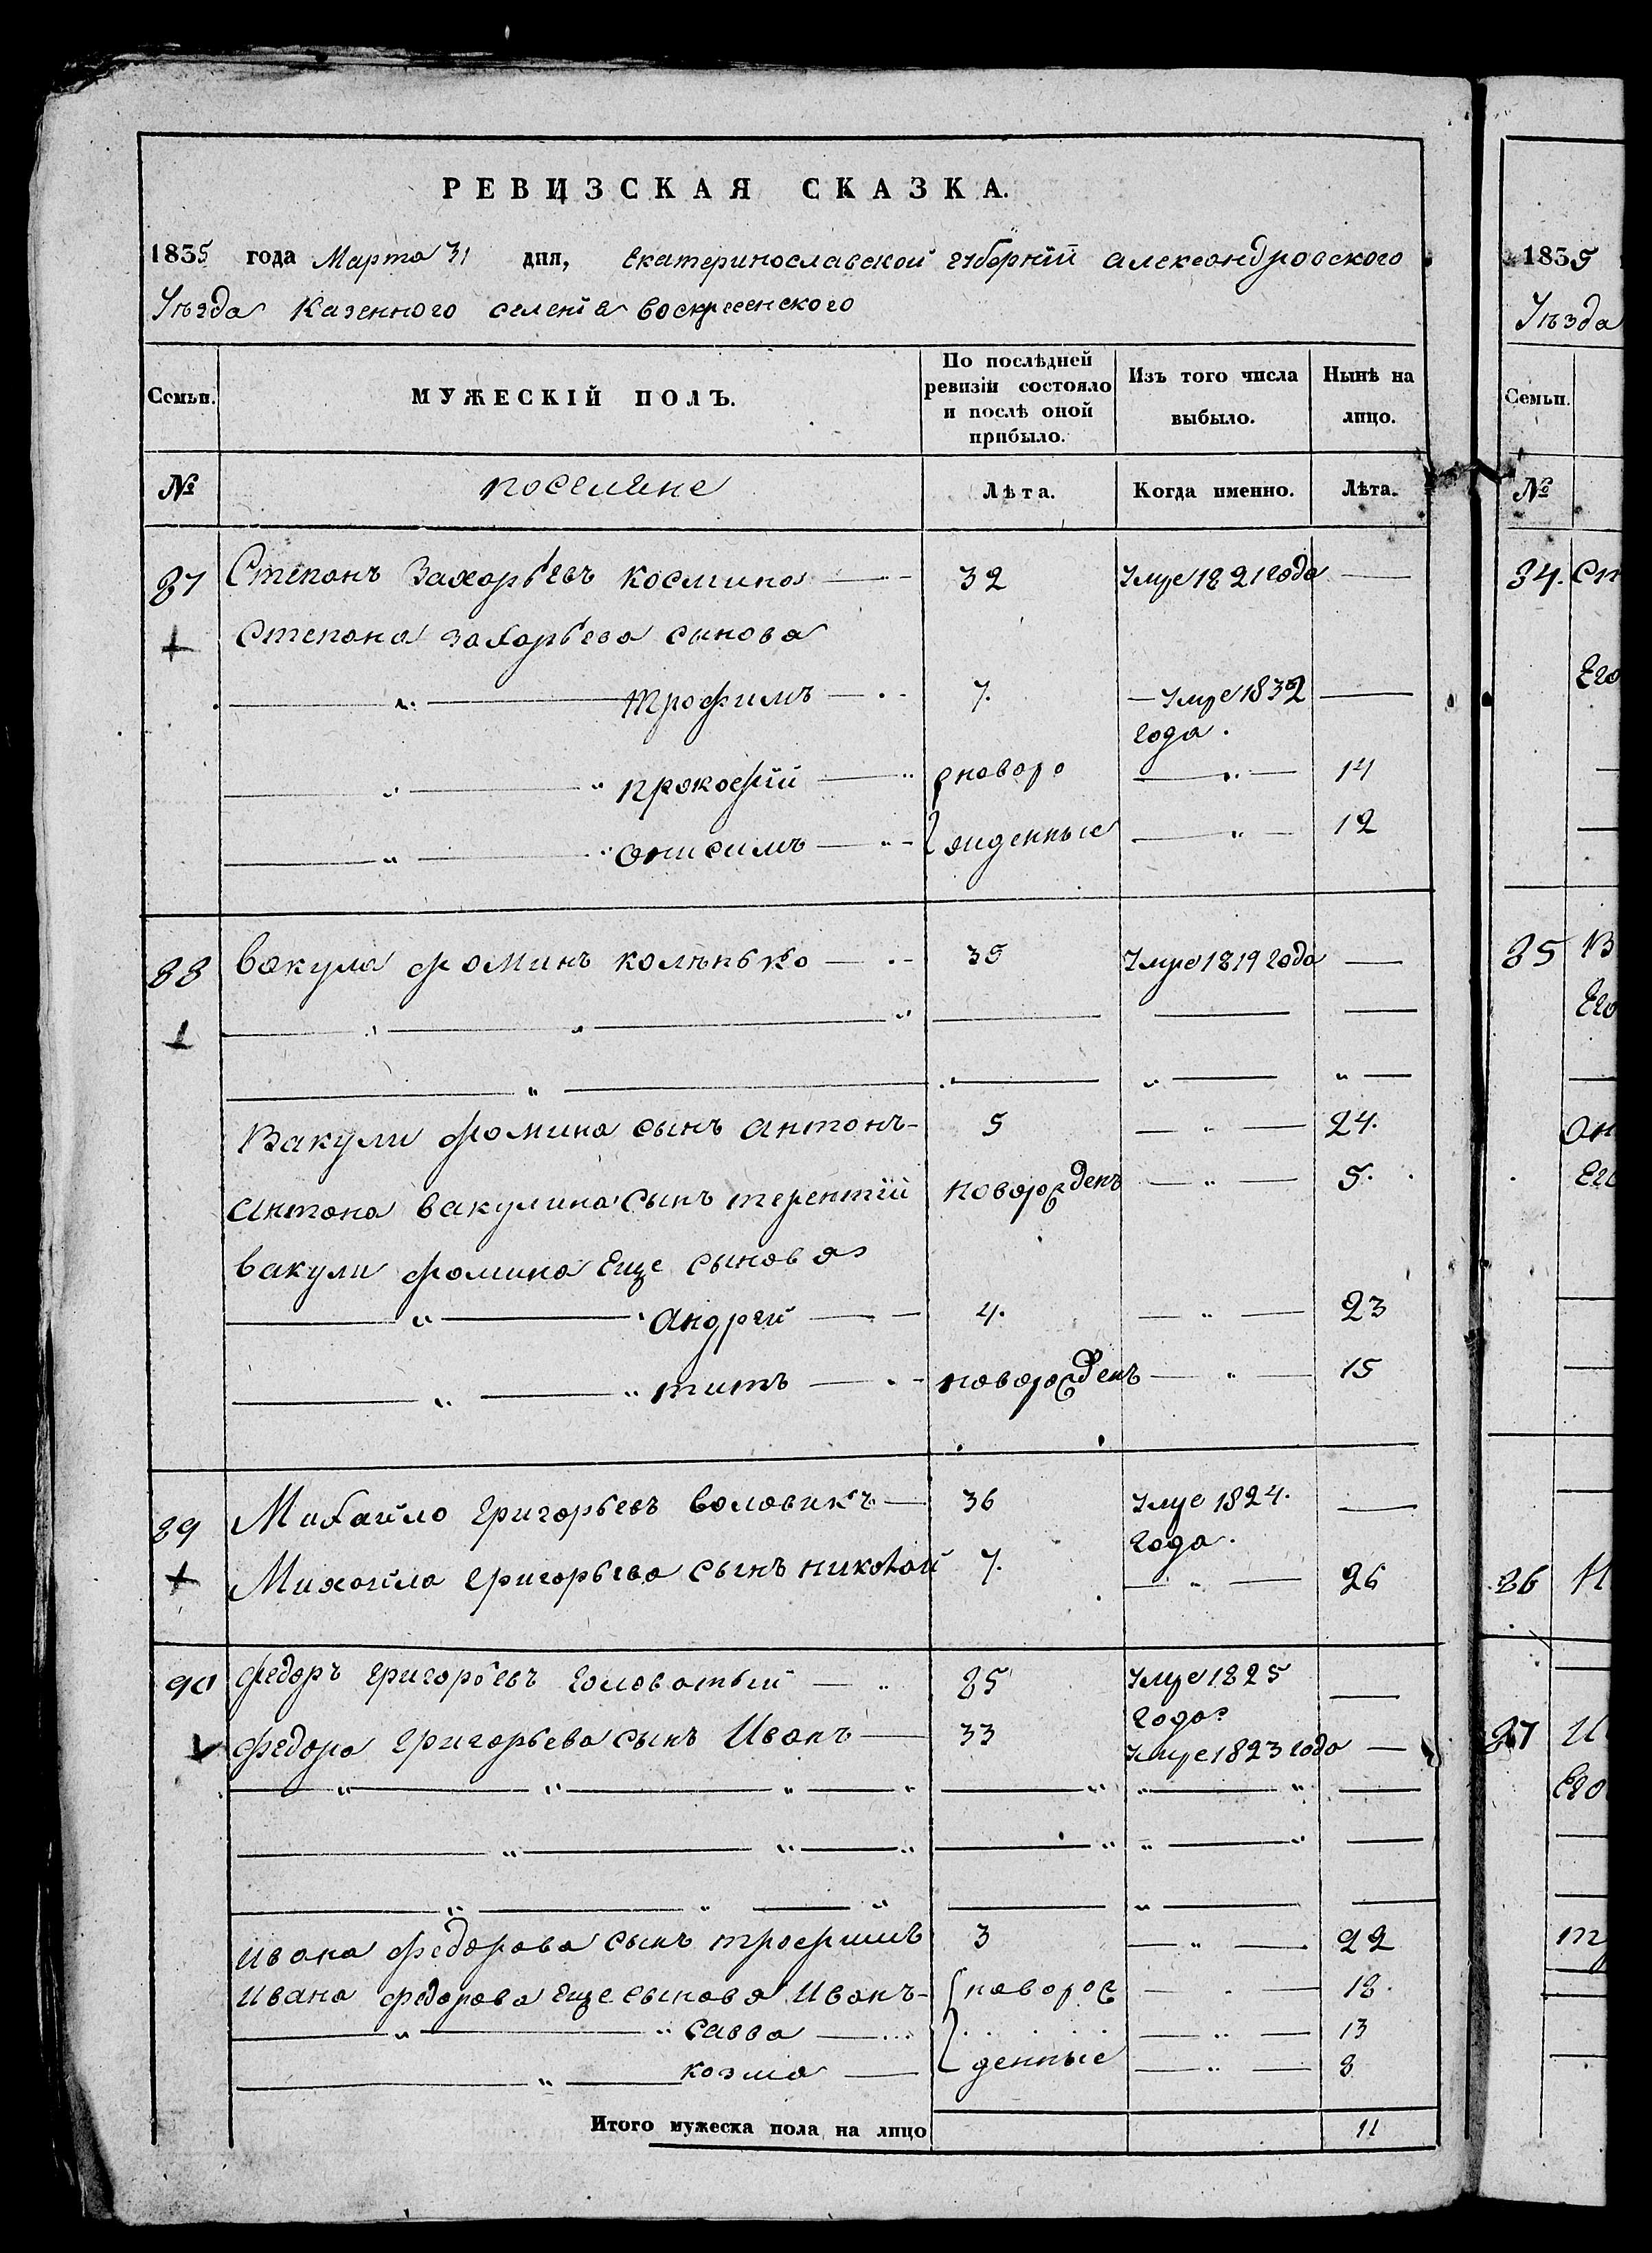 РЕВИЗСКАЯ СКАЗКА.
1835 года Марта 31 дня, Екатеринославской губернiй александровского
Уѣзда Казенного селенiя воскресенского
Семьи. МУЖЕСКІЙ ПОЛЪ. По послѣдней ревизіи состояло и послѣ оной прибыло. Изъ того числа выбыло. Нынѣ на лицо.
№ поселяне Лѣта. Когда именно. Лѣта.
87 Степанъ Захарьевъ космина 32 Умре 1821 года —
Степана захарьева сынова
" трофимъ 7. Умре 1832 —
года.
" прокофiй новоро — " — 14
" онисимъ жденные — " — 12
88 Вакула фоминъ 35 Умре 1819 года —
Вакули фомина сынъ антонъ 5 — " — 24.
антона вакулина сынъ терентiй новорожденъ — " — 5.
вакули фомина еще сыновя
" андрей 4. — " — 23
" титъ новорожденъ — " — 15
89 Михайло григорьевъ воловикъ 36 Умре 1824. —
года.
Михайла григорьева сынъ николай 7. — " — 26
90 федоръ григорьевъ головатый 85 Умре 1825 —
года
федора григорьева сынъ Иванъ 33 Умре 1823 года —
ивана федорова сынъ трофимъ 3 — " — 22
ивана федорова еще сыновя иванъ новорож — " — 18.
" савва — " — 13
" козма денные — " — 8
Итого мужеска пола на лицо 11
1835
Уѣзда
Семьи.
№
84. Ст
Его
85 В
Его
Он
Его
86
87 И
Его